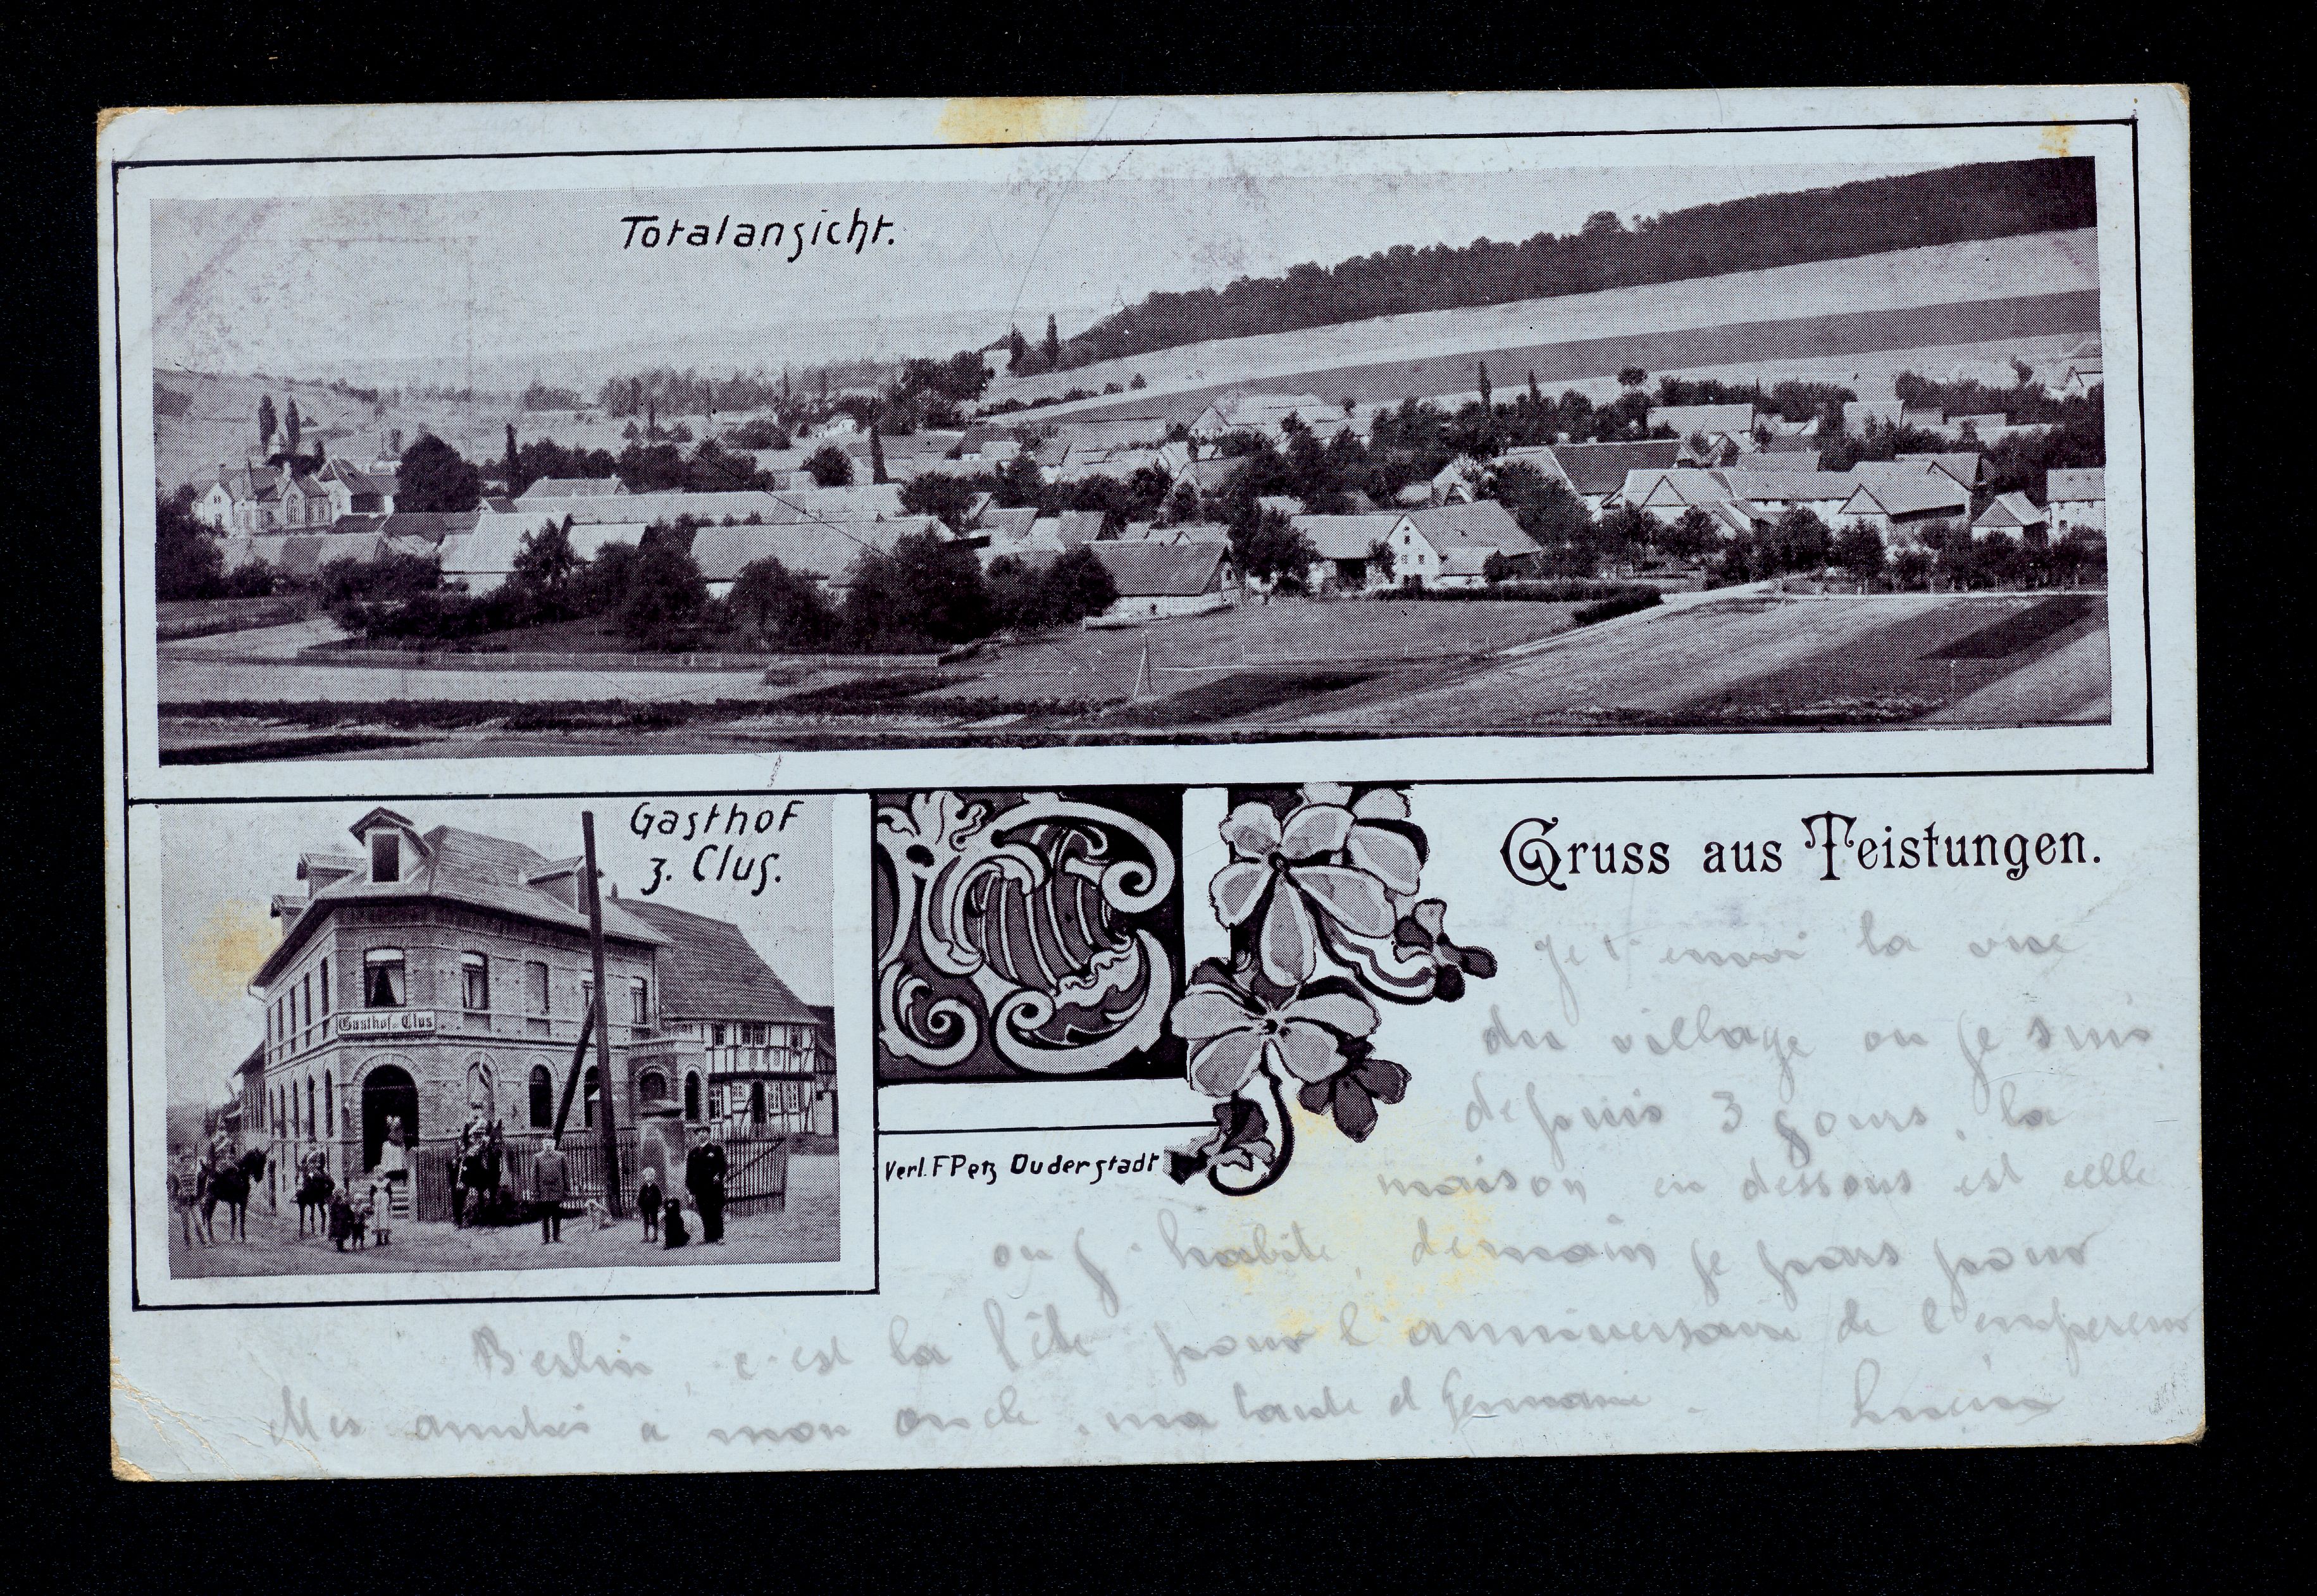 Totalansicht.
Gasthof
z. Clus.
Gasthof z. Clus
Gruss aus Teistungen.
Verl. F Petz Duderstadt
Je t'envoi la vue
du village ou je suis
depuis 3 jours, la
maison en dessous est celle
ou j'habite, demain je pars pour
Berlin, c'est la fête pour l'anniversaire de l'empereur
Mes amitiés a mon oncle, ma tante et Germaine. Lucien